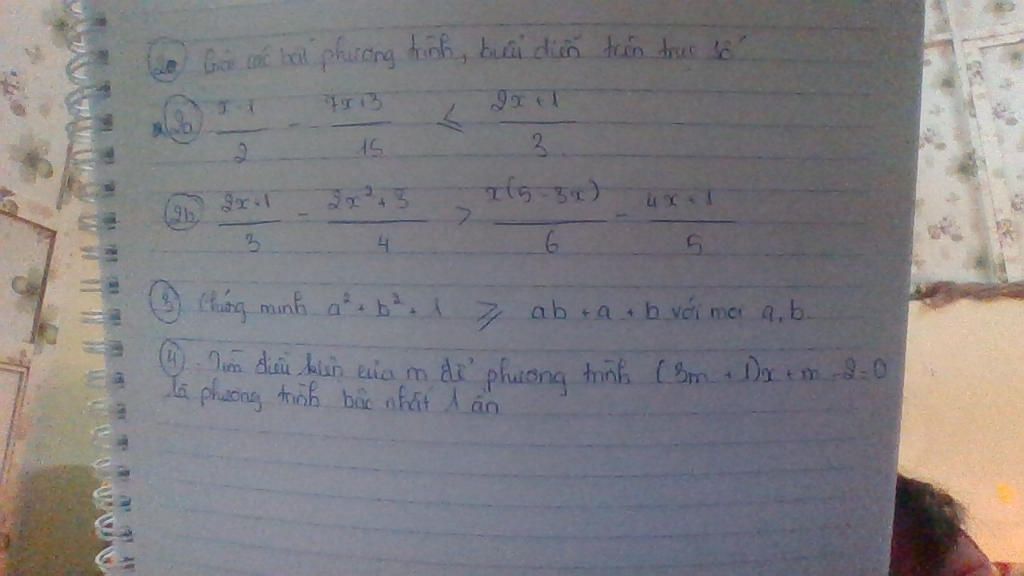 2a Giải các bất phương trình, biểu diễn trên trục số
2a x-1/2 - 7x+3/15 ≤ 2x+1/3
2b 2x+1/3 - 2x²+3/4 > x(5-3x)/6 - 4x+1/5
3 Chứng minh a² + b² + 1 ≥ ab + a + b với mọi a, b.
4 Tìm điều kiện của m để phương trình (3m + 1)x + m - 2 = 0
là phương trình bậc nhất 1 ẩn